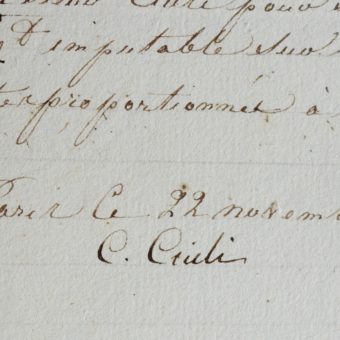 pour
imputable sur
proportionnée à
Paris Ce 22 novem
C. Ciuli